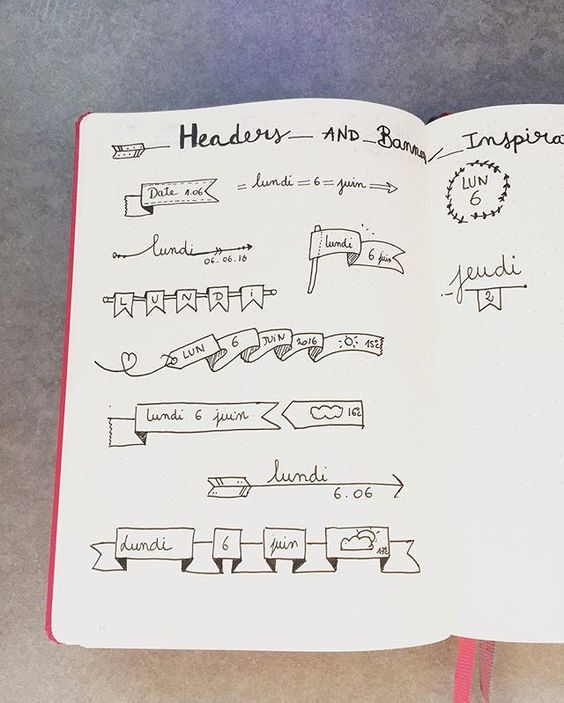 Headers AND Banners Inspira
Date 1.06
= lundi = 6 = juin
LUN
6
lundi
06.06.16
lundi
6 juin
jeudi
2
LUNDI
LUN 6 JUIN 2016 15°C
lundi 6 juin 16°C
lundi
6.06
Lundi 6 juin 17°C